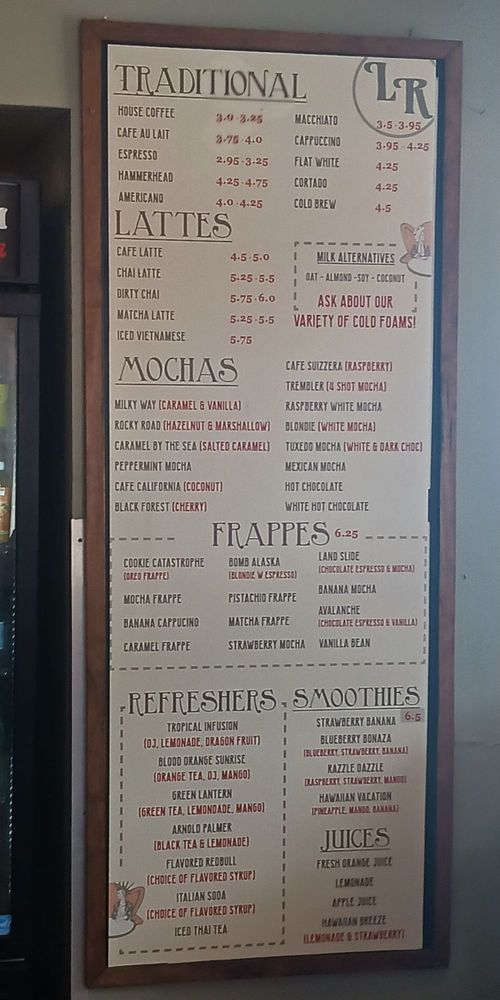 LR
TRADITIONAL
HOUSE COFFEE 3.0-3.25
CAFE AU LAIT 3.75-4.0
ESPRESSO 2.95-3.25
HAMMERHEAD 4.25-4.75
AMERICANO 4.0-4.25
MACCHIATO 3.5-3.95
CAPPUCCINO 3.95-4.25
FLAT WHITE 4.25
CORTADO 4.25
COLD BREW 4.5
LATTES
CAFE LATTE 4.5-5.0
CHAI LATTE 5.25-5.5
DIRTY CHAI 5.75-6.0
MATCHA LATTE 5.25-5.5
ICED VIETNAMESE 5.75
MILK ALTERNATIVES
OAT - ALMOND - SOY - COCONUT
ASK ABOUT OUR
VARIETY OF COLD FOAMS!
MOCHAS
MILKY WAY (CARAMEL & VANILLA)
ROCKY ROAD (HAZELNUT & MARSHALLOW)
CARAMEL BY THE SEA (SALTED CARAMEL)
PEPPERMINT MOCHA
CAFE CALIFORNIA (COCONUT)
BLACK FOREST (CHERRY)
CAFE SUIZZERA (RASPBERRY)
TREMBLER (4 SHOT MOCHA)
RASPBERRY WHITE MOCHA
BLONDIE (WHITE MOCHA)
TUXEDO MOCHA (WHITE & DARK CHOC)
MEXICAN MOCHA
HOT CHOCOLATE
WHITE HOT CHOCOLATE
FRAPPES 6.25
COOKIE CATASTROPHE
(OREO FRAPPE)
MOCHA FRAPPE
BANANA CAPPUCINO
CARAMEL FRAPPE
BOMB ALASKA
(BLONDIE W ESPRESSO)
PISTACHIO FRAPPE
MATCHA FRAPPE
STRAWBERRY MOCHA
LAND SLIDE
(CHOCOLATE ESPRESSO & MOCHA)
BANANA MOCHA
AVALANCHE
(CHOCOLATE ESPRESSO & VANILLA)
VANILLA BEAN
REFRESHERS
TROPICAL INFUSION
(OJ, LEMONADE, DRAGON FRUIT)
BLOOD ORANGE SUNRISE
(ORANGE TEA, OJ, MANGO)
GREEN LANTERN
(GREEN TEA, LEMONDADE, MANGO)
ARNOLD PALMER
(BLACK TEA & LEMONADE)
FLAVORED REDBULL
(CHOICE OF FLAVORED SYRUP)
ITALIAN SODA
(CHOICE OF FLAVORED SYRUP)
ICED THAI TEA
SMOOTHIES
6.5
STRAWBERRY BANANA
BLUEBERRY BONAZA
(BLUEBERRY, STRAWBERRY, BANANA)
RAZZLE DAZZLE
(RASPBERRY, STRAWBERRY, MANGO)
HAWAIIAN VACATION
(PINEAPPLE, MANGO, BANANA)
JUICES
FRESH ORANGE JUICE
LEMONADE
APPLE JUICE
HAWAIIAN BREEZE
(LEMONADE & STRAWBERRY)